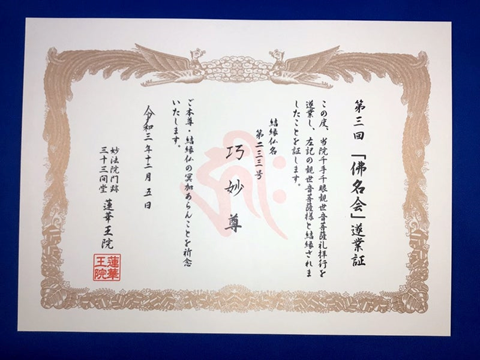 第三回「佛名会」遂業証
この度、当院千手千眼観世音菩薩礼拝行を
遂業し、左記の観世音菩薩様と結縁されま
したことを証します。
結縁仏名
第二三三号
巧妙尊
ご本尊・結縁仏の冥加あらんことを祈念
いたします。
令和三年十二月五日
妙法院門跡
三十三間堂
蓮華王院
蓮華
王院